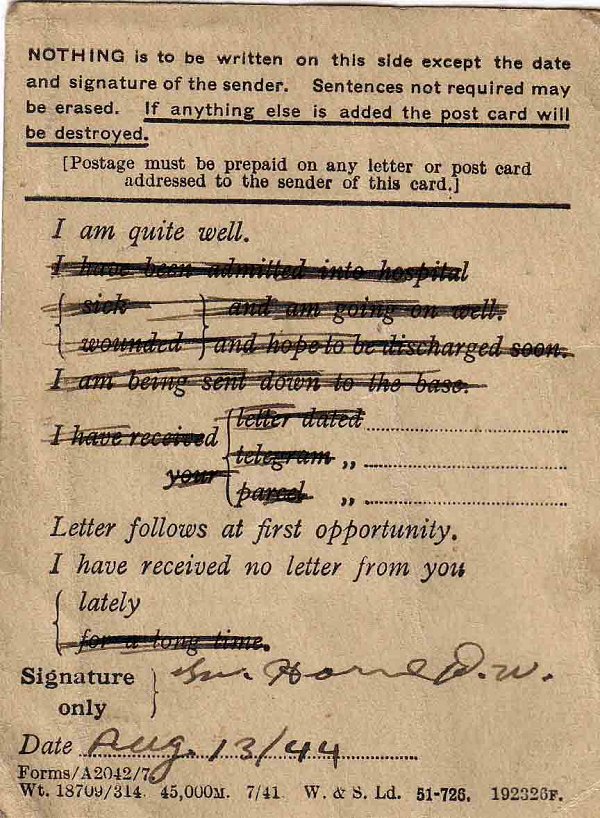 NOTHING is to be written on this side except the date
and signature of the sender. Sentences not required may
be erased. If anything else is added the post card will
be destroyed.
[Postage must be prepaid on any letter or post card
addressed to the sender of this card.]
I am quite well.
I have been admitted into hospital
sick and am going on well.
wounded and hope to be discharged soon.
I am being sent down to the base.
letter dated
I have received
telegram „
your
parcel „
Letter follows at first opportunity.
I have received no letter from you
lately
for a long time.
Signature
only
D.W.
Date Aug. 13/44
Forms/A2042/7
Wt. 18709/314. 45,000M. 7/41 W. & S. Ld. 51-726. 192326F.